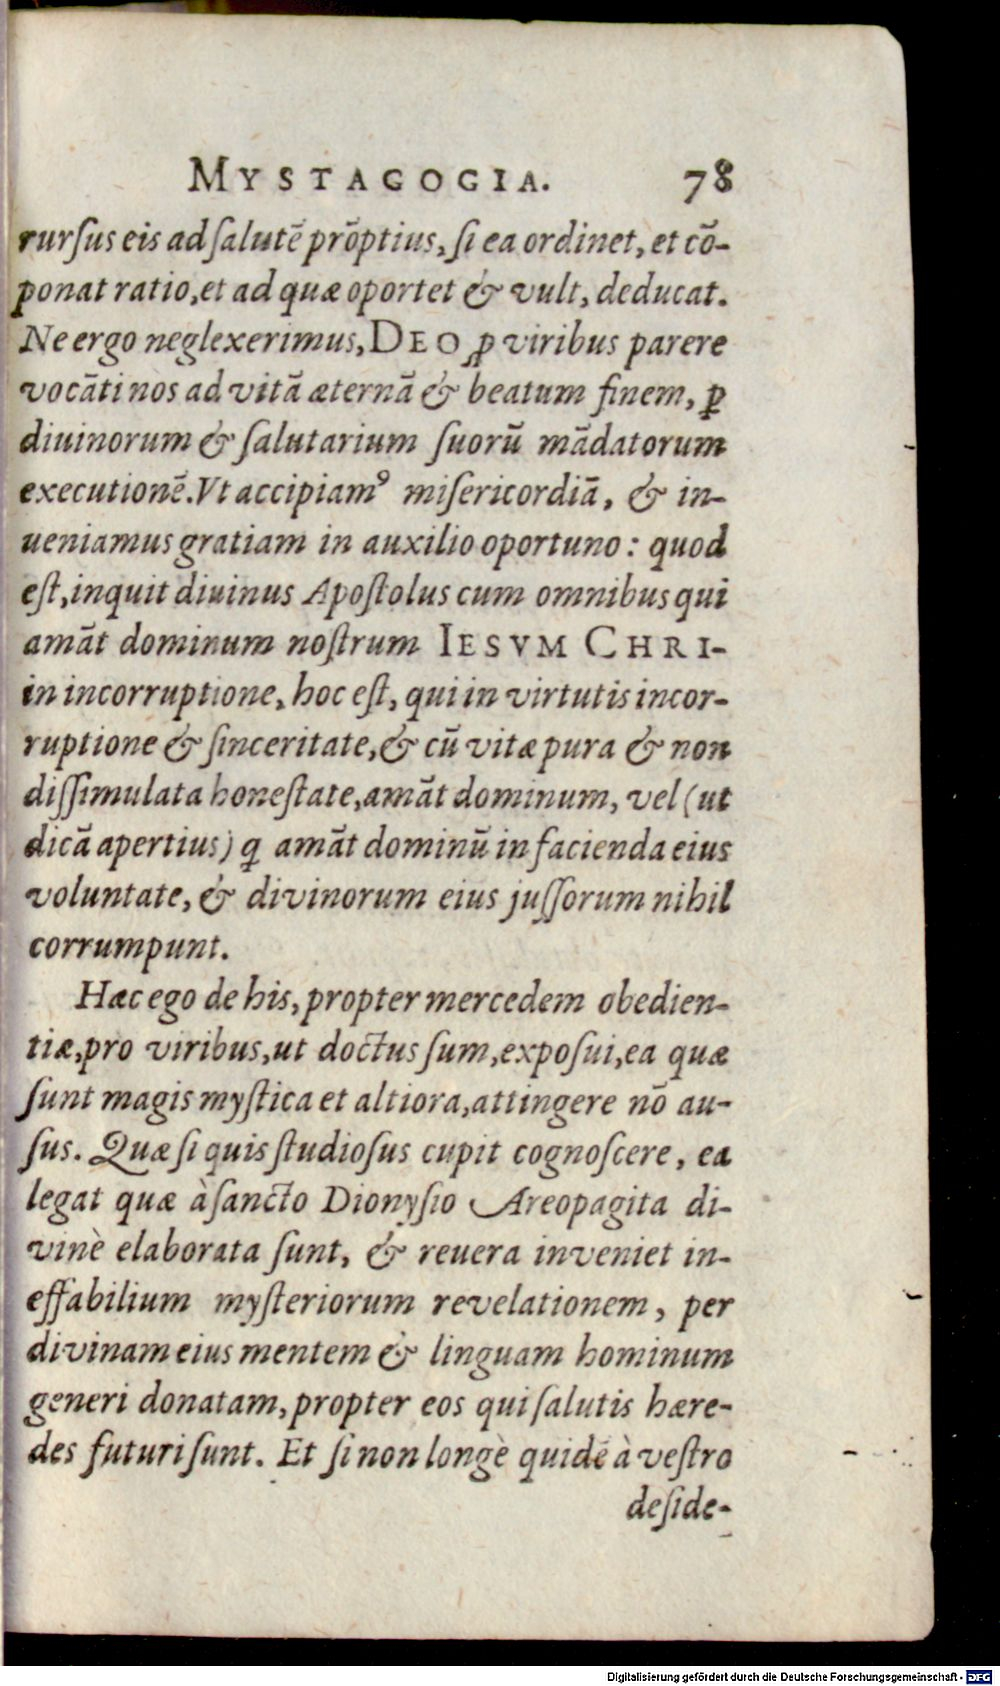 MYSTAGOGIA. 78
rurſus eis ad ſalutē prōptius, ſi ea ordinet, et cō-
ponat ratio, et ad quæ oportet & vult, deducat.
Ne ergo neglexerimus, DEO ꝓ viribus parere
vocāti nos ad vitā æternā & beatum finem, ꝑ
diuinorum & ſalutarium ſuorū mādatorum
executionē. Vt accipiamꝰ miſericordiā, & in-
ueniamus gratiam in auxilio oportuno: quod
eſt, inquit diuinus Apoſtolus cum omnibus qui
amāt dominum noſtrum IESVM CHRI-
in incorruptione, hoc eſt, qui in virtutis incor-
ruptione & ſinceritate, & cū vitæ pura & non
diſſimulata honeſtate, amāt dominum, vel (ut
dicā apertius) ꝗ amāt dominū in facienda eius
voluntate, & divinorum eius juſſorum nihil
corrumpunt.
Hæc ego de his, propter mercedem obedien-
tiæ, pro viribus, ut doctus ſum, expoſui, ea quæ
ſunt magis myſtica et altiora, attingere nō au-
ſus. Quæ ſi quis ſtudioſus cupit cognoſcere, ea
legat quæ à ſancto Dionyſio Areopagita di-
vinè elaborata ſunt, & reuera inveniet in-
effabilium myſteriorum revelationem, per
divinam eius mentem & linguam hominum
generi donatam, propter eos qui ſalutis hære-
des futuri ſunt. Et ſi non longè quidē à veſtro
deſide-
Digitalisierung gefördert durch die Deutsche Forschungsgemeinschaft - DFG